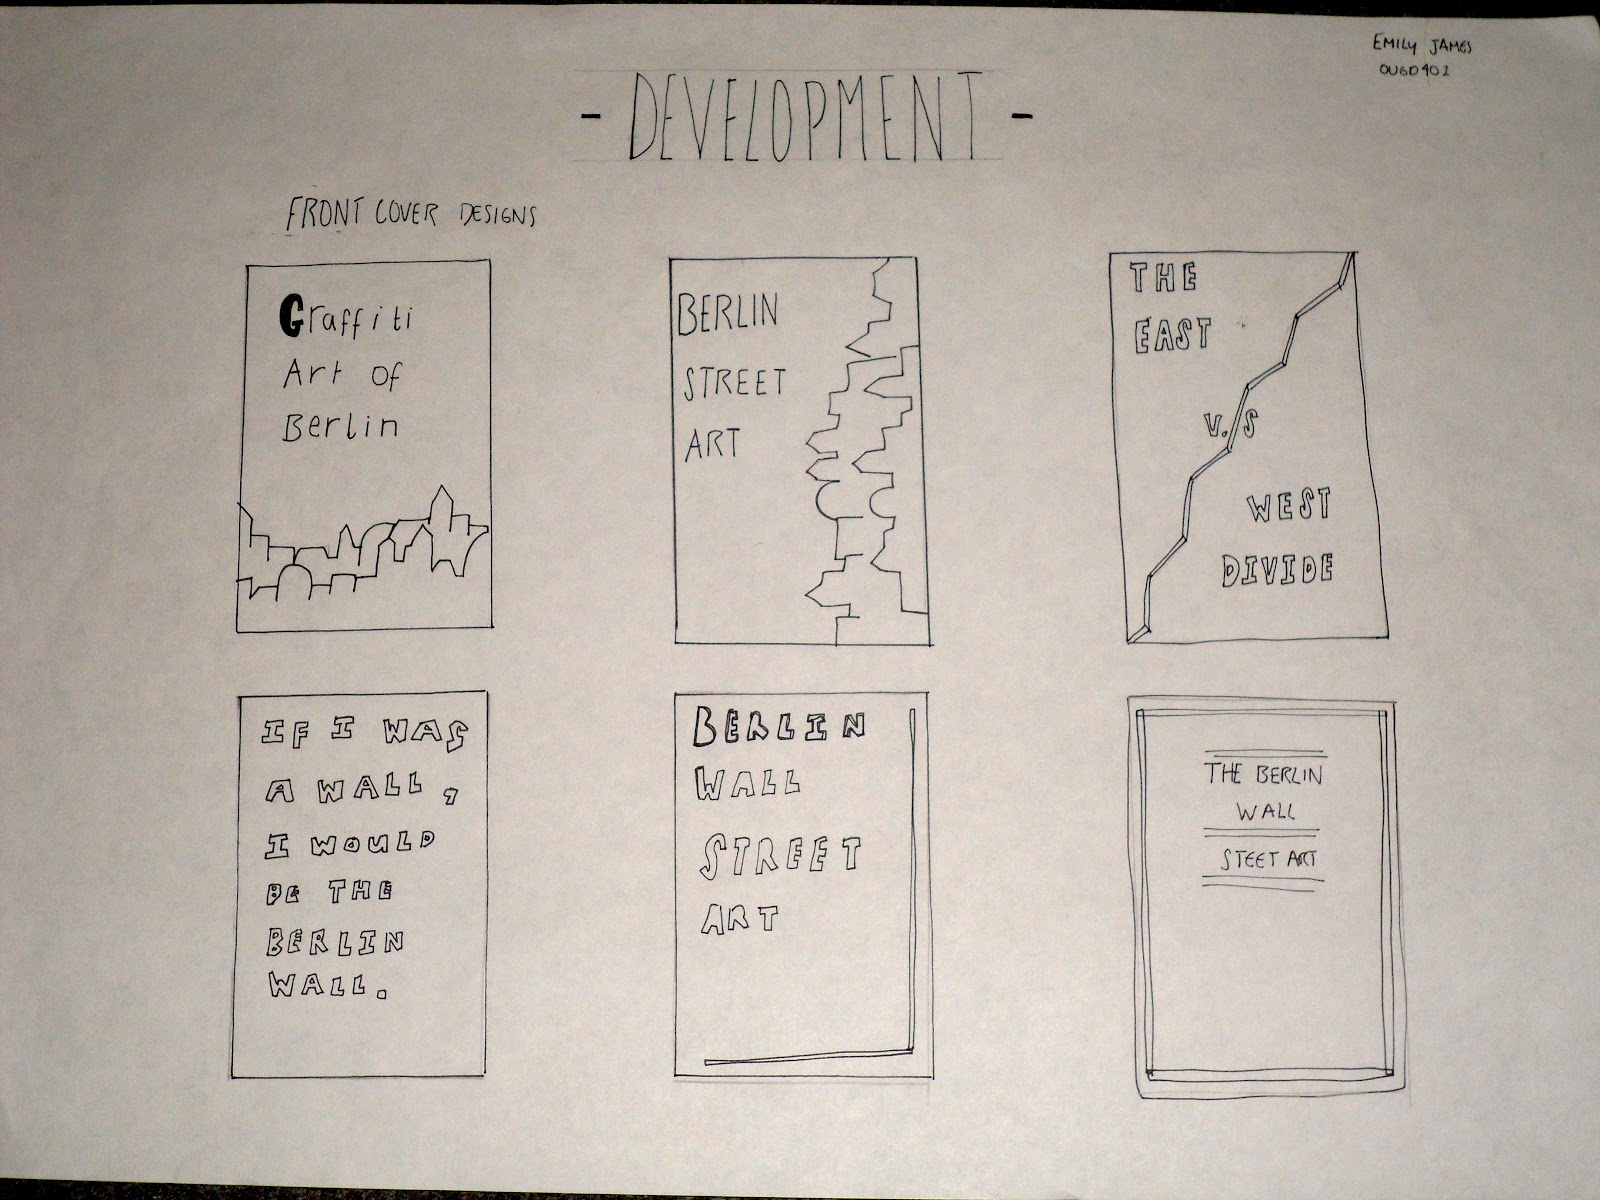 EMILY JAMES
OUGD401
- DEVELOPMENT -
FRONT COVER DESIGNS
Graffiti
Art of
Berlin
BERLIN
STREET
ART
THE
EAST
V.S
WEST
DIVIDE
IF I WAS
A WALL,
I WOULD
BE THE
BERLIN
WALL.
BERLIN
WALL
STREET
ART
THE BERLIN
WALL
STEET ART